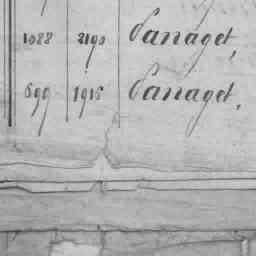 1088 2190 Panaget,
699 1915 Panaget,